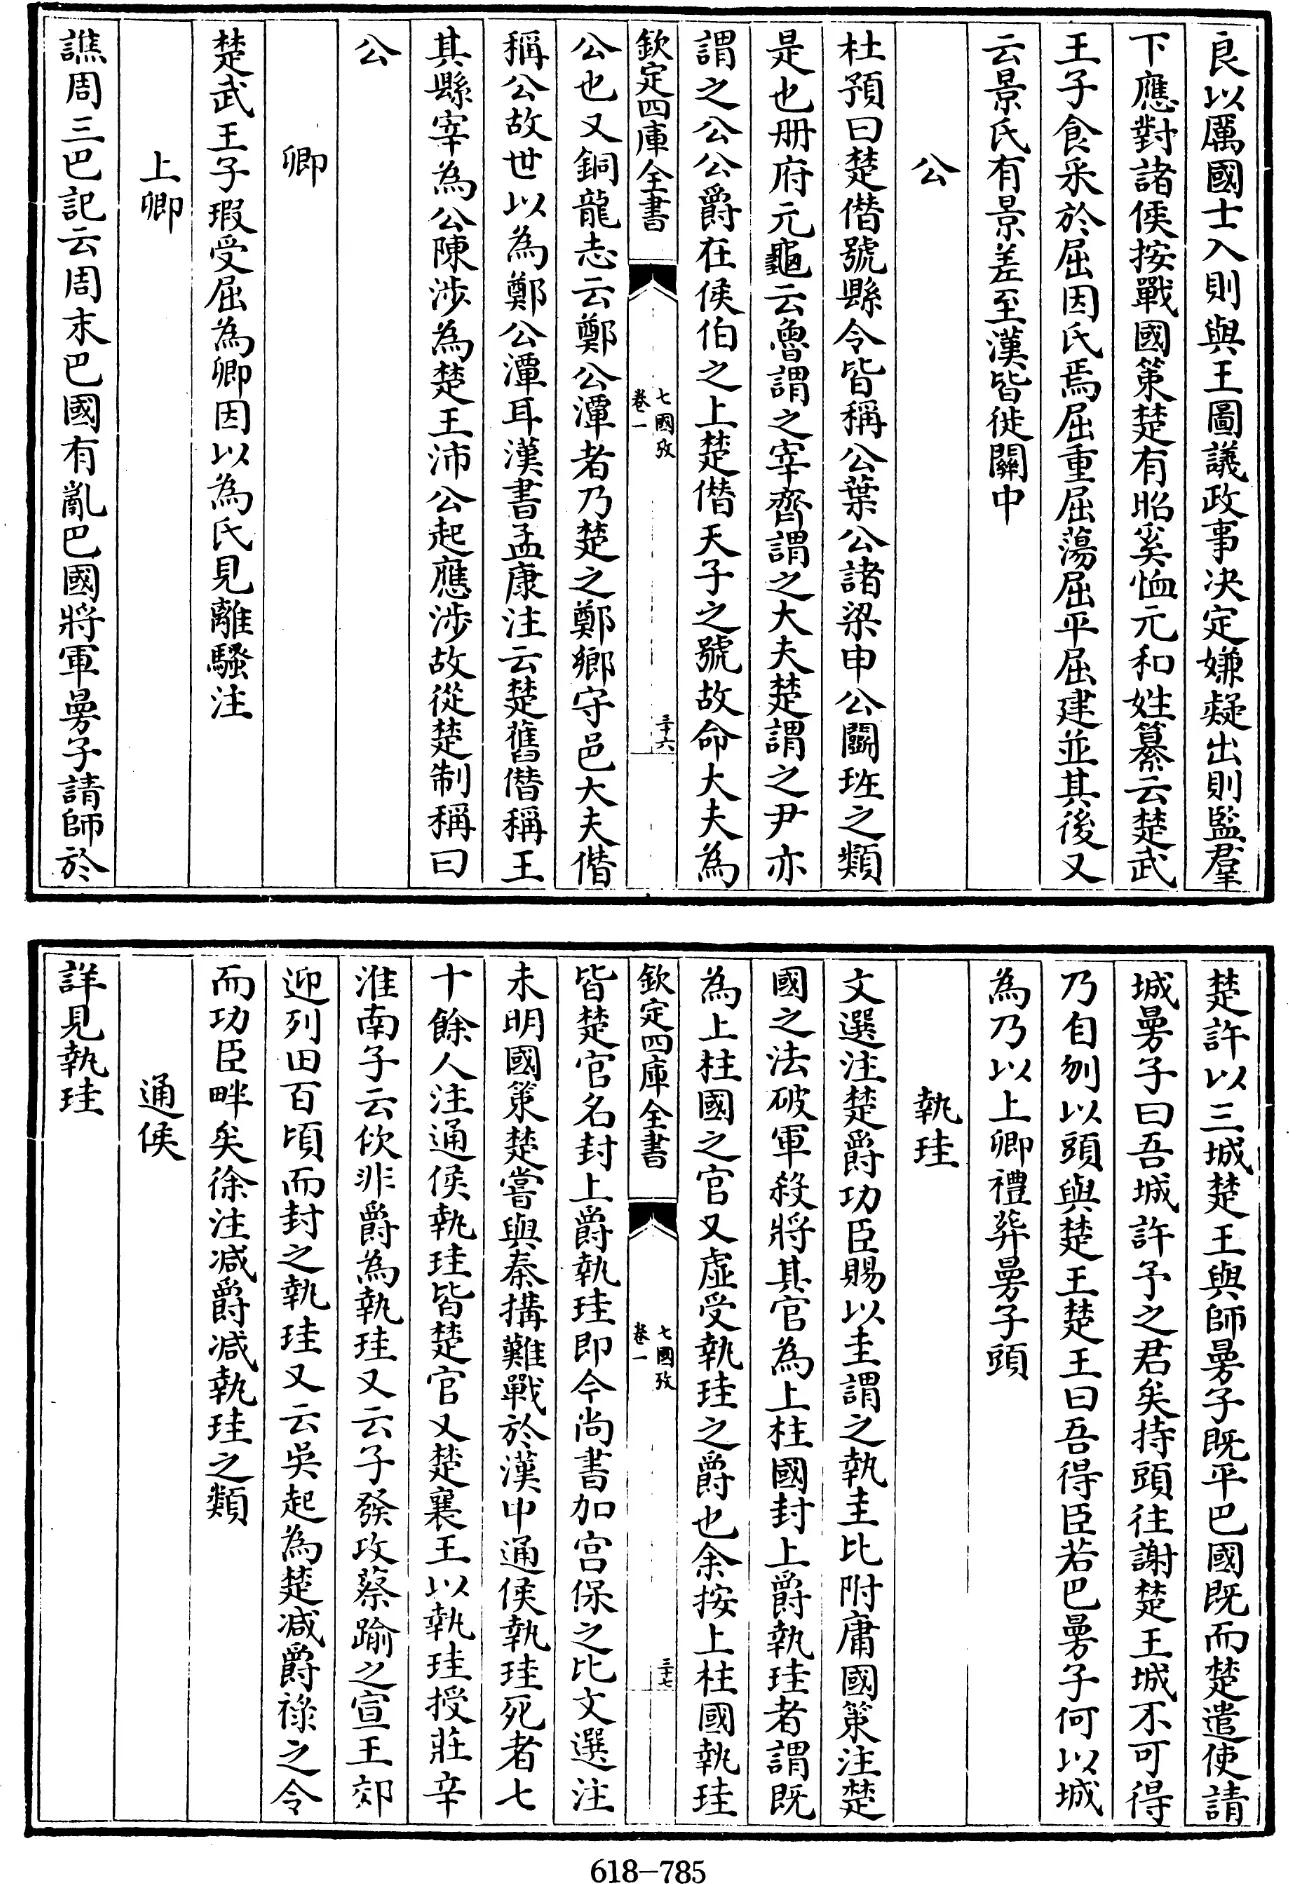 良以厲國士入則與王圖議政事决定嫌疑出則監羣
下應對諸侯按戰國策楚有昭奚恤元和姓纂云楚武
王子食采於屈因氏焉屈重屈蕩屈平屈建並其後又
云景氏有景差至漢皆徙關中
公
杜預曰楚僭號縣令皆稱公葉公諸梁申公鬭班之類
是也册府元龜云魯謂之宰齊謂之大夫楚謂之尹亦
謂之公公爵在侯伯之上楚僭天子之號故命大夫為
欽定四庫全書
七國攷
卷一
三十六
公也又銅龍志云鄭公潭者乃楚之鄭鄉守邑大夫僭
稱公故世以為鄭公潭耳漢書孟康注云楚舊僭稱王
其縣宰為公陳涉為楚王沛公起應涉故從楚制稱曰
公
卿
楚武王子瑕受屈為卿因以為氏見離騷注
上卿
譙周三巴記云周末巴國有亂巴國將軍曼子請師於
楚許以三城楚王與師曼子既平巴國既而楚遣使請
城曼子曰吾城許予之君矣持頭往謝楚王城不可得
乃自刎以頭與楚王楚王曰吾得臣若巴曼子何以城
為乃以上卿禮葬曼子頭
執珪
文選注楚爵功臣賜以圭謂之執圭比附庸國策注楚
國之法破軍殺將其官為上柱國封上爵執珪者謂既
為上柱國之官又虛受執珪之爵也余按上柱國執珪
欽定四庫全書
七國攷
卷一
三十七
皆楚官名封上爵執珪即今尚書加宫保之比文選注
未明國策楚嘗與秦搆難戰於漢中通侯執珪死者七
十餘人注通侯執珪皆楚官又楚襄王以執珪授莊辛
淮南子云佽非爵為執珪又云子發攻蔡踰之宣王郊
迎列田百頃而封之執珪又云吳起為楚减爵祿之令
而功臣畔矣徐注减爵减執珪之類
通侯
詳見執珪
618-785